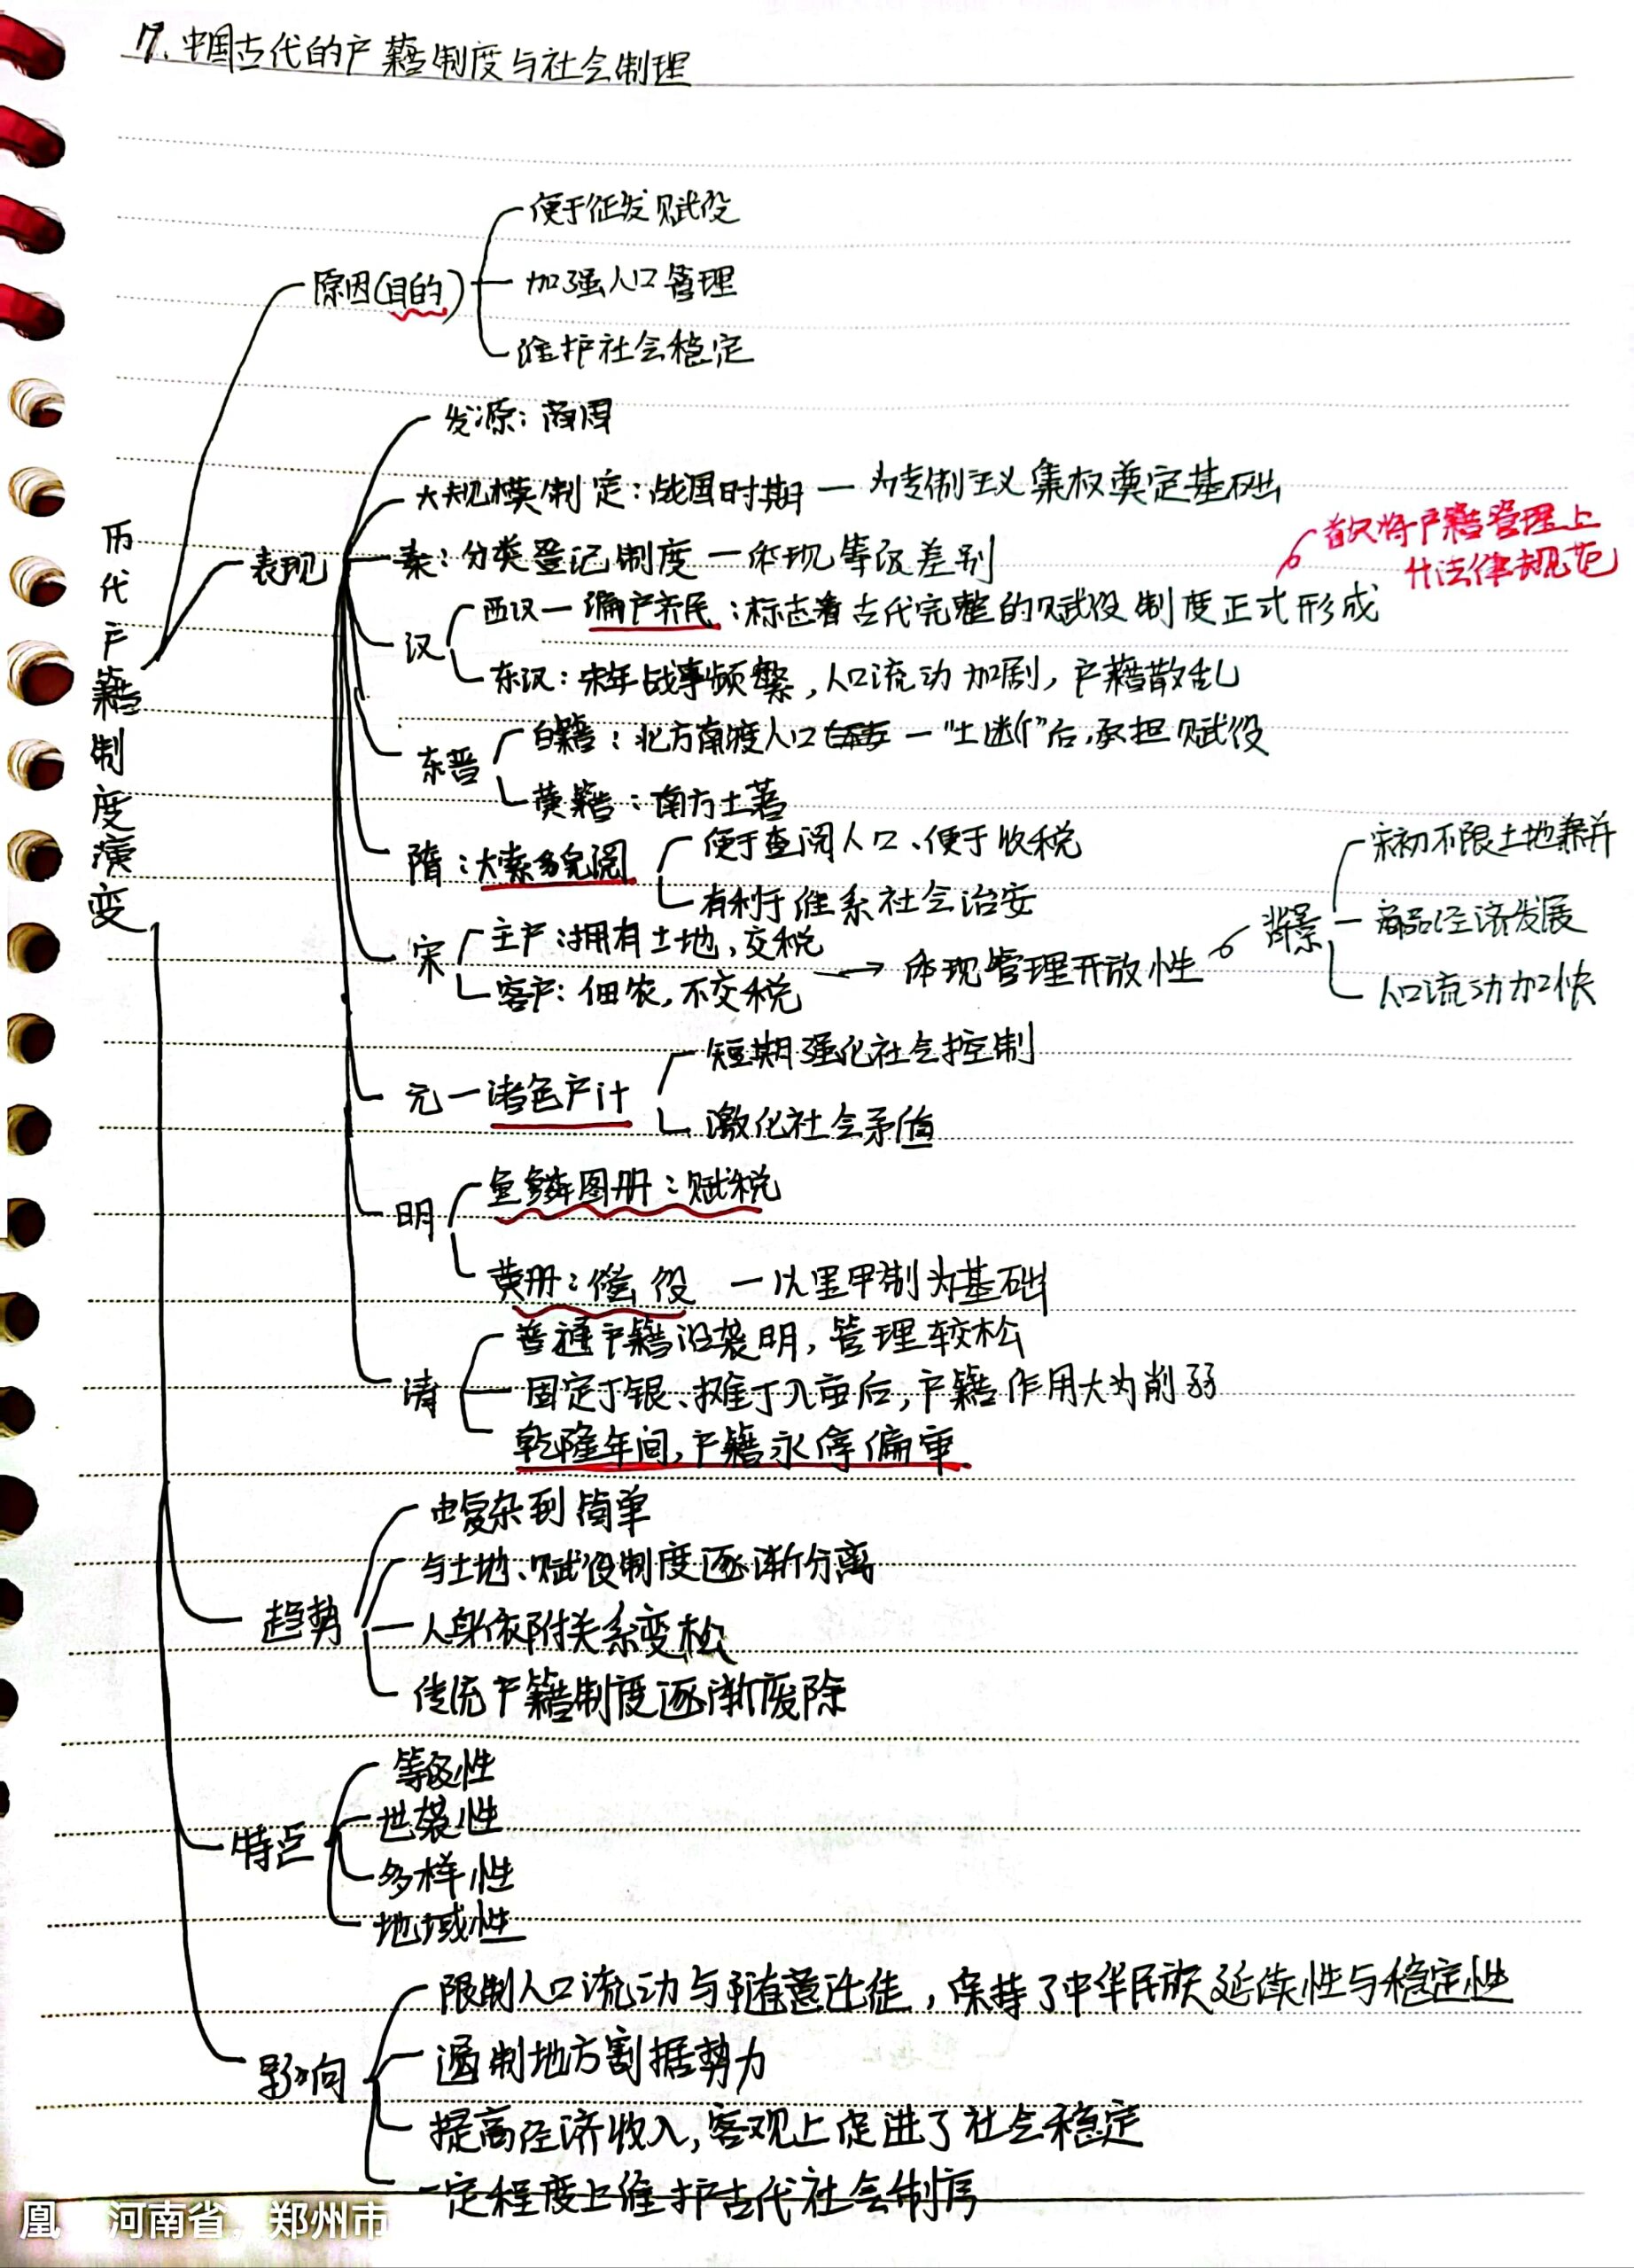 17.中国古代的户籍制度与社会制理
历代户籍制度演变
原因(目的)
便于征发赋役
加强人口管理
维护社会稳定
表现
发源：商周
大规模制定：战国时期 — 为专制主义集权奠定基础
秦：分类登记制度 — 体现等级差别
首次将户籍管理上
升法律规范
汉
西汉 — 编户齐民：标志着古代完整的赋役制度正式形成
东汉：末年战事频繁，人口流动加剧，户籍散乱
东晋
白籍：北方南渡人口 — “土断”后，承担赋役
黄籍：南方土著
隋：大索貌阅
便于查阅人口、便于收税
有利于维系社会治安
宋
主户：拥有土地，交税
客户：佃农，不交税
→ 体现管理开放性
背景
宋初不限土地兼并
商品经济发展
人口流动加快
元 — 诸色户计
短期强化社会控制
激化社会矛盾
明
鱼鳞图册：赋税
黄册：徭役 — 以里甲制为基础
清
普通户籍沿袭明，管理较松
固定丁银、摊丁入亩后，户籍作用大为削弱
乾隆年间，户籍永停编审
趋势
由复杂到简单
与土地、赋役制度逐渐分离
人身依附关系变松
传统户籍制度逐渐废除
特点
等级性
世袭性
多样性
地域性
影响
限制人口流动与随意迁徙，保持了中华民族延续性与稳定性
遏制地方割据势力
提高经济收入，客观上促进了社会稳定
一定程度上维护古代社会制序
凰 河南省，郑州市